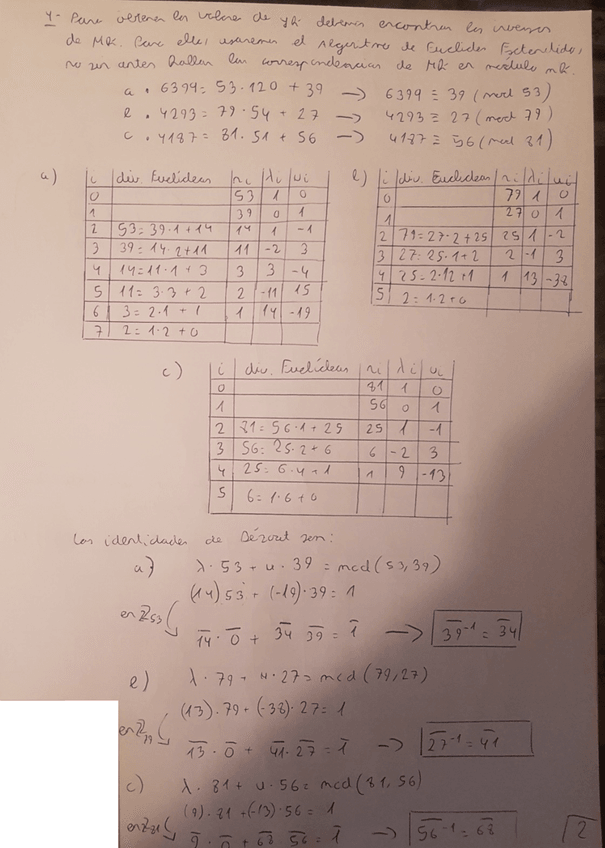 4- Para obtener los valores de yk debemos encontrar los inversos
de Mk. Para ello, usaremos el Algoritmo de Euclides Extendido,
no sin antes hallar las correspondencias de Mk en módulo mk.
a. 6399 = 53·120 + 39 → 6399 ≡ 39 (mod 53)
b. 4293 = 79·54 + 27 → 4293 ≡ 27 (mod 79)
c. 4187 = 81·51 + 56 → 4187 ≡ 56 (mod 81)
a)
i | div. Euclidea | ri | λi | ui
0 | | 53 | 1 | 0
1 | | 39 | 0 | 1
2 | 53 = 39·1 + 14 | 14 | 1 | -1
3 | 39 = 14·2 + 11 | 11 | -2 | 3
4 | 14 = 11·1 + 3 | 3 | 3 | -4
5 | 11 = 3·3 + 2 | 2 | -11 | 15
6 | 3 = 2·1 + 1 | 1 | 14 | -19
7 | 2 = 1·2 + 0
b)
i | div. Euclidea | ri | λi | ui
0 | | 79 | 1 | 0
1 | | 27 | 0 | 1
2 | 79 = 27·2 + 25 | 25 | 1 | -2
3 | 27 = 25·1 + 2 | 2 | -1 | 3
4 | 25 = 2·12 + 1 | 1 | 13 | -38
5 | 2 = 1·2 + 0
c)
i | div. Euclídea | ri | λi | ui
0 | | 81 | 1 | 0
1 | | 56 | 0 | 1
2 | 81 = 56·1 + 25 | 25 | 1 | -1
3 | 56 = 25·2 + 6 | 6 | -2 | 3
4 | 25 = 6·4 + 1 | 1 | 9 | -13
5 | 6 = 1·6 + 0
Las identidades de Bézout son:
a) λ·53 + u·39 = mcd(53,39)
(14)·53 + (-19)·39 = 1
en Z53 1̅4̅·0̅ + 3̅4̅ 3̅9̅ = 1̅ → 3̅9̅⁻¹ = 3̅4̅
b) λ·79 + u·27 = mcd(79,27)
(13)·79 + (-38)·27 = 1
en Z79 1̅3̅·0̅ + 4̅1̅·2̅7̅ = 1̅ → 2̅7̅⁻¹ = 4̅1̅
c) λ·81 + u·56 = mcd(81,56)
(9)·81 + (-13)·56 = 1
en Z81 9̅·0̅ + 6̅8̅ 5̅6̅ = 1̅ → 5̅6̅⁻¹ = 6̅8̅
2